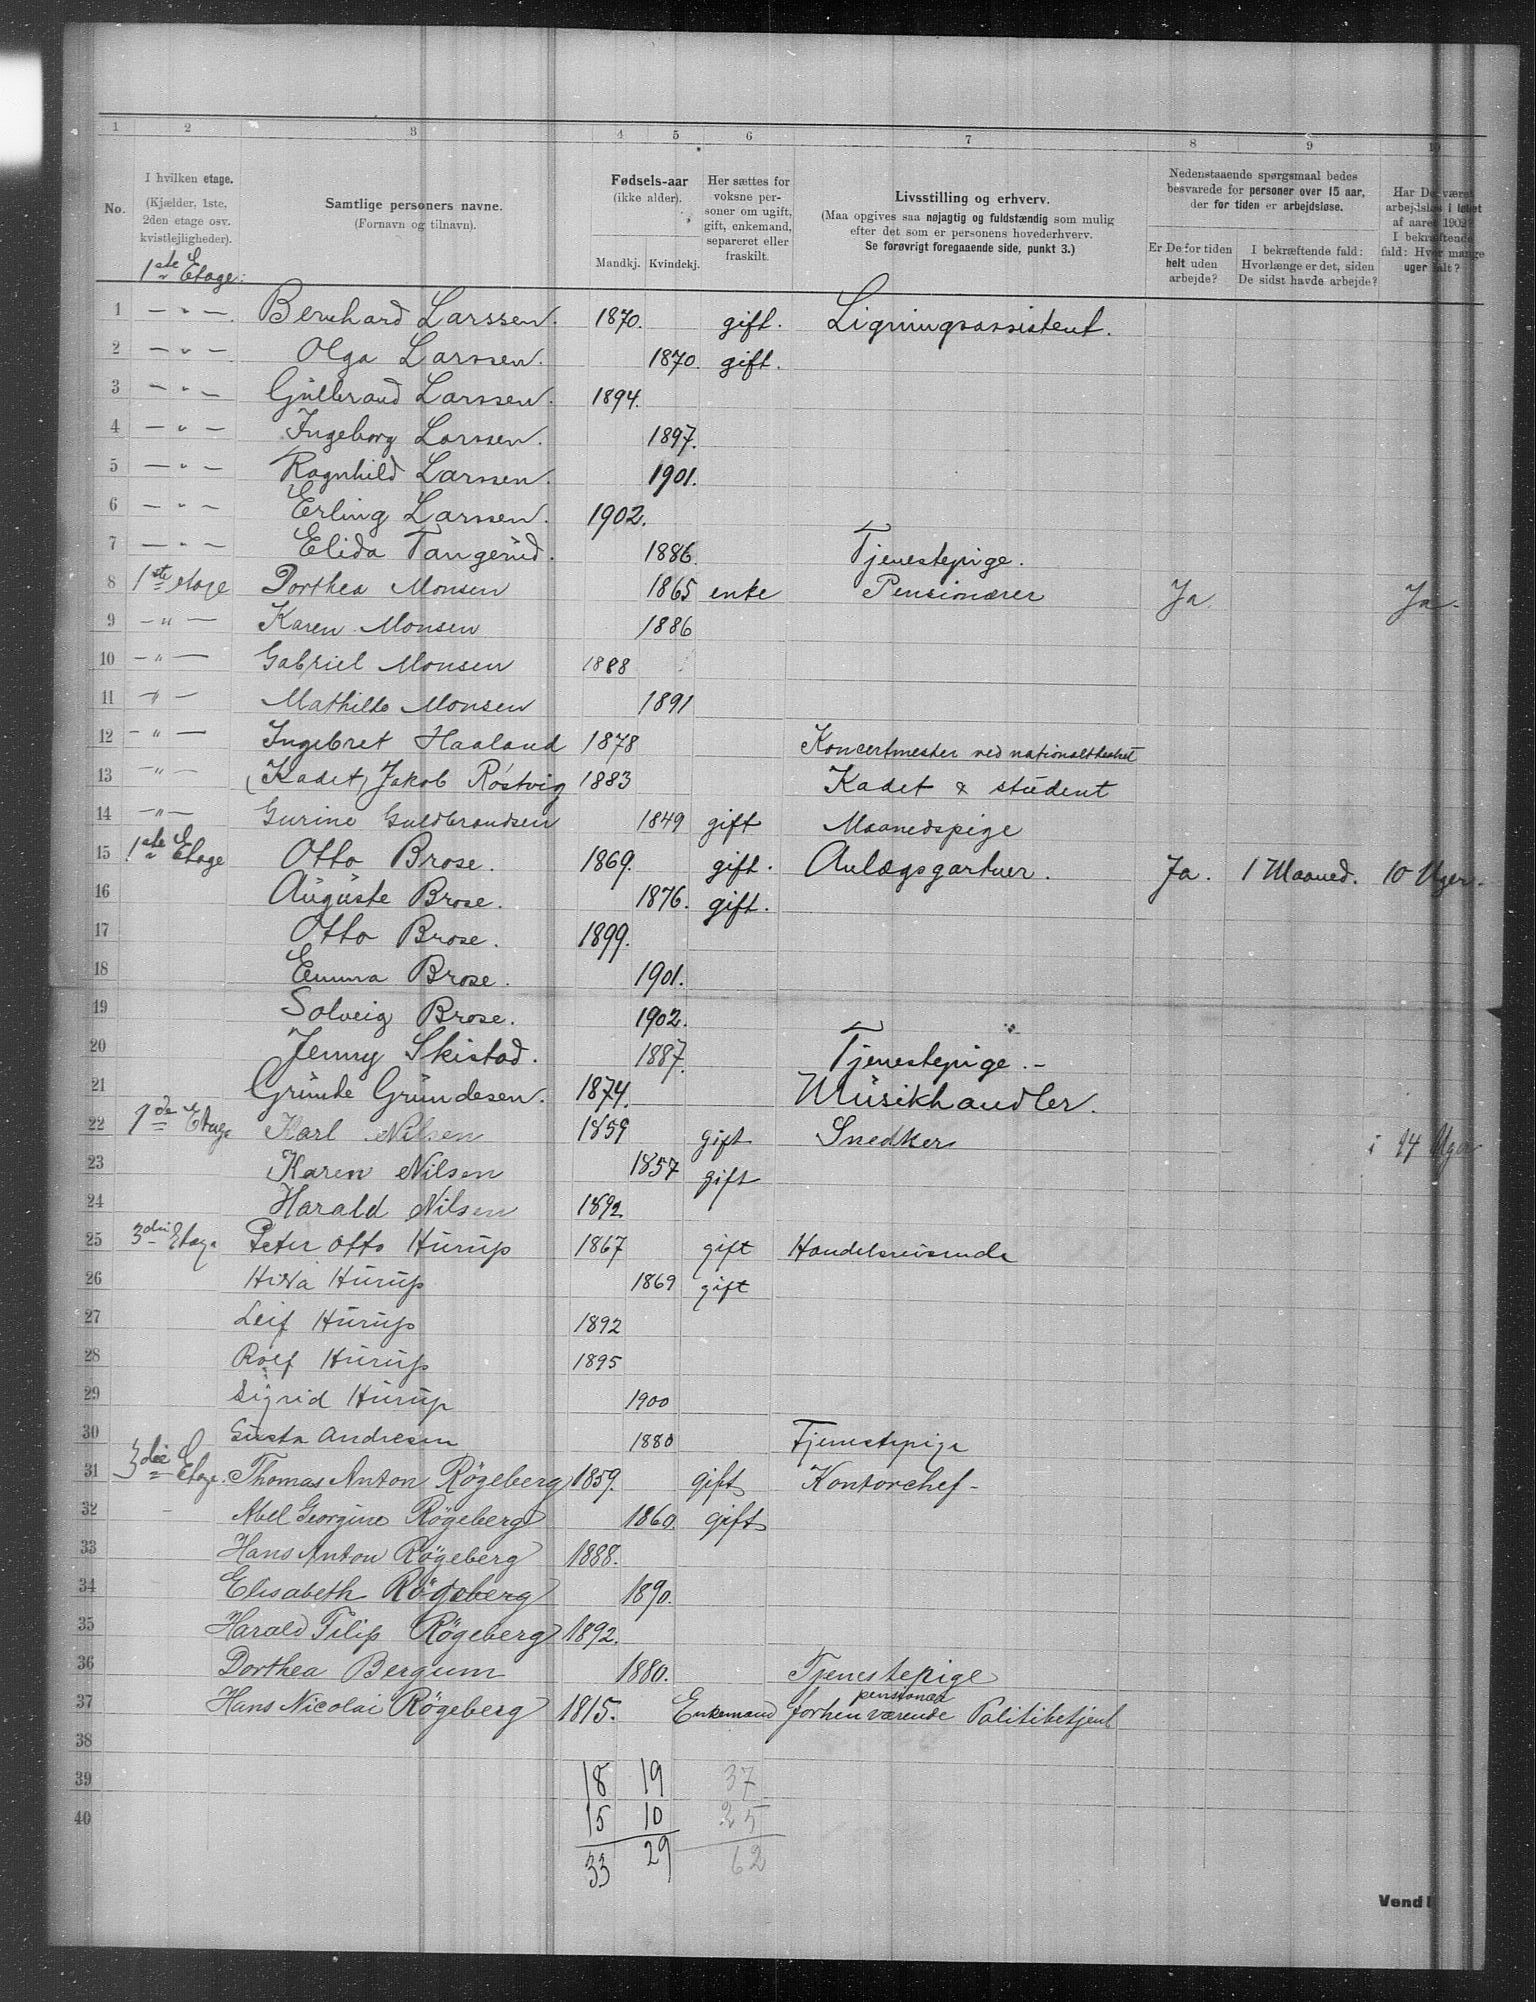 1 2 3 4 5 6 7 8 9 10
No.
I hvilken etage.
(Kjælder, 1ste,
2den etage osv.
kvistlejligheder).
Samtlige personers navne.
(Fornavn og tilnavn).
Fødsels-aar
(ikke alder).
Mandkj. Kvindekj.
Her sættes for
voksne per-
soner om ugift,
gift, enkemand,
separeret eller
fraskilt.
Livsstilling og erhverv.
(Maa opgives saa nøjagtig og fuldstændig som mulig
efter det som er personens hovederhverv.
Se forøvrigt foregaaende side, punkt 3.)
Nedenstaaende spørgsmaal bedes
besvarede for personer over 15 aar,
der for tiden er arbejdsløse.
Er De for tiden
helt uden
arbejde?
I bekræftende fald:
Hvorlænge er det, siden
De sidst havde arbejde?
Har De været
arbejdsløs i løbet
af aaret 1902?
I bekræftende
fald: Hvor mange
uger ialt?
1ste Etage:
1 — " — Bernhard Larssen. 1870. gift. Ligningsassistent.
2 — " — Olga Larssen. 1870. gift.
3 — " — Gülbrand Larssen. 1894.
4 — " — Ingeborg Larssen. 1897.
5 — " — Ragnhild Larssen. 1901.
6 — " — Erling Larssen. 1902.
7 — " — Elida Tangerüd. 1886. Tjenestepige.
8 1ste etage Dorthea Monsen 1865 enke Pensionærer Ja. Ja.
9 — " — Karen Monsen 1886
10 — " — Gabriel Monsen 1888
11 — " — Mathilde Monsen 1891
12 — " — Ingebret Haaland 1878 Koncertmester ved nationaltheatret
13 — " — (Kadet) Jakob Röstvig 1883 Kadet & stüdent
14 — " — Gurine Guldbrandsen 1849 gift Maanedspige
15 1ste Etage Otto Brose. 1869. gift. Anlægsgartner. Ja. 1 Maaned. 10 Uger.
16 Aügüste Brose. 1876. gift.
17 Otto Brose. 1899.
18 Emma Brose. 1901.
19 Solveig Brose. 1902.
20 Jenny Skistad. 1887. Tjenestepige. -
21 Gründe Gründesen. 1874. Müsikhandler.
22 1de Etage Karl Nilsen 1859 gift Snedker i 14 Uger
23 Karen Nilsen 1857 gift
24 Harald Nilsen 1892
25 3die Etage Peter Otto Hürüp 1867 gift Handelsreisende
26 Hürüp 1869 gift
27 Leif Hürüp 1892
28 Rolf Hürüp 1895
29 Sigrid Hürüp 1900
30 Güsta Andresen 1880 Tjenestepige
31 3die Etage. Thomas Anton Rögeberg 1859. gift Kontorchef -
32 - Abel Georgine Rögeberg 1860. gift
33 Hans Anton Rögeberg 1888.
34 Elisabeth Rögeberg 1890.
35 Harald Filip Rögeberg 1892.
36 Dorthea Bergum 1880. Tjenestepige
pensionær
37 Hans Nicolai Rögeberg 1815. Enkemand forhenværende Politibetjent
38
39 18 19 37
40 15 10 25
33 29 62
Vend